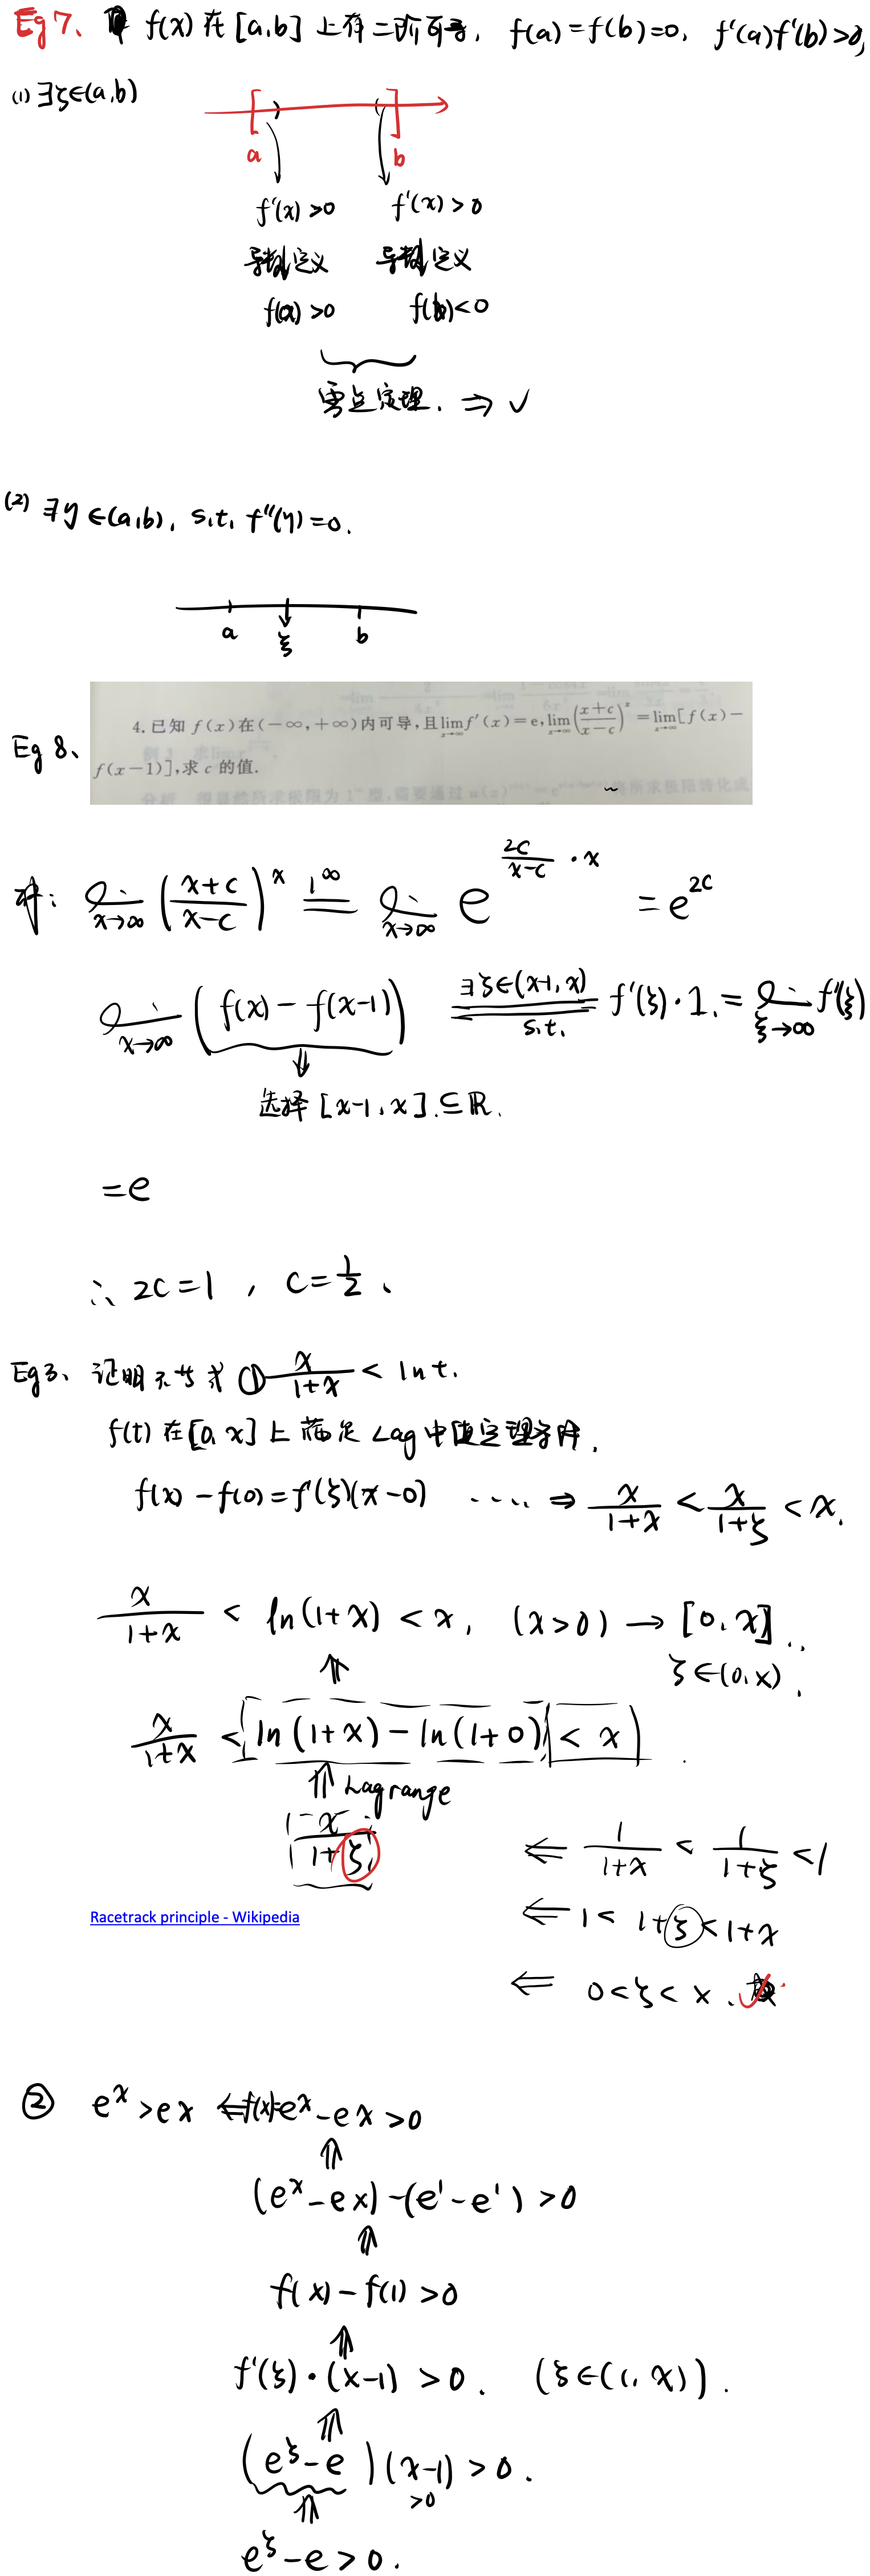 Eg 7、 f(x) 在 [a,b] 上有二阶可导, f(a)=f(b)=0, f'(a)f'(b)>0,
(1) ∃ξ∈(a,b)
a b
f'(x)>0 f'(x)>0
导数定义 导数定义
f(x)>0 f(b)<0
零点定理. ⇒ ✓
(2) ∃η∈(a,b), s.t. f''(η)=0.
a ξ b
Eg 8、
4. 已知 f(x)在(-∞,+∞)内可导,且lim_{x→∞} f'(x)=e, lim_{x→∞} ((x+c)/(x-c))^x = lim_{x→∞} [f(x)-
f(x-1)],求 c 的值.
解: lim_{x→∞} ((x+c)/(x-c))^x =^{1^∞} lim_{x→∞} e^{2c/(x-c)·x} = e^{2c}
lim_{x→∞} (f(x)-f(x-1)) =^{∃ξ∈(x-1,x)}_{s.t.} f'(ξ)·1. = lim_{ξ→∞} f'(ξ)
⇓
选择 [x-1,x].⊆ℝ.
=e
∴ 2c=1, c=1/2.
Eg3、证明不等式 ① x/(1+x) < ln t.
f(t) 在[0,x]上满足 Lag 中值定理条件.
f(x)-f(0)=f'(ξ)(x-0) ···· ⇒ x/(1+x) < x/(1+ξ) < x.
x/(1+x) < ln(1+x) < x, (x>0) → [0,x]..
⇑ ξ∈(0,x).
x/(1+x) < ln(1+x)-ln(1+0) < x
⇑ Lagrange
x/(1+ξ) ⇐ 1/(1+x) < 1/(1+ξ) < 1
Racetrack principle - Wikipedia
⇐ 1< 1+ξ <1+x
⇐ 0<ξ<x. ✓
② e^x>ex ⇐ f(x)=e^x-ex>0
⇑
(e^x-ex)-(e^1-e^1)>0
⇑
f(x)-f(1)>0
⇑
f'(ξ)·(x-1)>0. (ξ∈(1,x)).
⇑
(e^ξ-e)(x-1)>0.
⇑ >0
e^ξ-e>0.